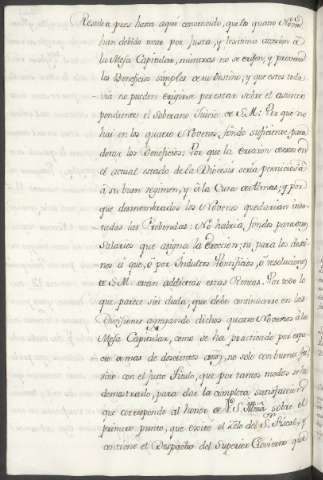 Resulta pues hasta aqui convencido, que los quatro Novenos
han debido
la Mesa Capitular, mientras no se erijan, y provean
los Beneficios simples de su destino; y que estos toda-
via no pueden erigirse por estar sobre el asunto
pendiente el soberano Juicio de S.M: Por que no
hai en los quatro Novenos, fondo suficiente para
dotar los Beneficios: Por que la ereccion de ellos en
el actual estado de la Diocesis seria perniciosa
á su buen regimen, y á la Cura de Almas; y por
que desmembrados los Novenos quedarian incon-
gruas las Prebendas: No habria, fondos para los
Salarios que asigna la Ereccion; ni para los desti-
nos á que, ó por Indultos Pontificios, ó resoluciones
de S.M. estan addictas estas Rentas. Por todo lo
que parece sin duda, que debe continuarse en las
Divisiones agregando dichos quatro Novenos á la
Mesa Capitular, como se ha practicado por espa-
cio de mas de doscientos años, no solo con buena fee
sino con el justo Titulo, que por tantos modos se ha
demostrado, para dar la completa satisfaccion
que corresponde al honor de sobre el
primero punto, que excitó el zelo del S. Fiscal, y
contiene el Despacho del Superior Govierno que